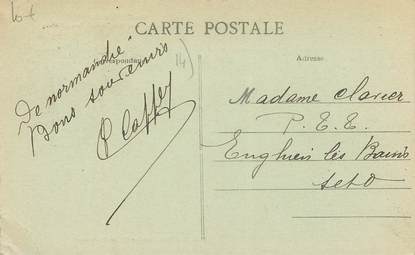 lot
CARTE POSTALE
Correspondance
Adresse
14
de normandie
Bons souvenirs
Madame Clavier
P. T. T.
Enghien les Bains
S et O